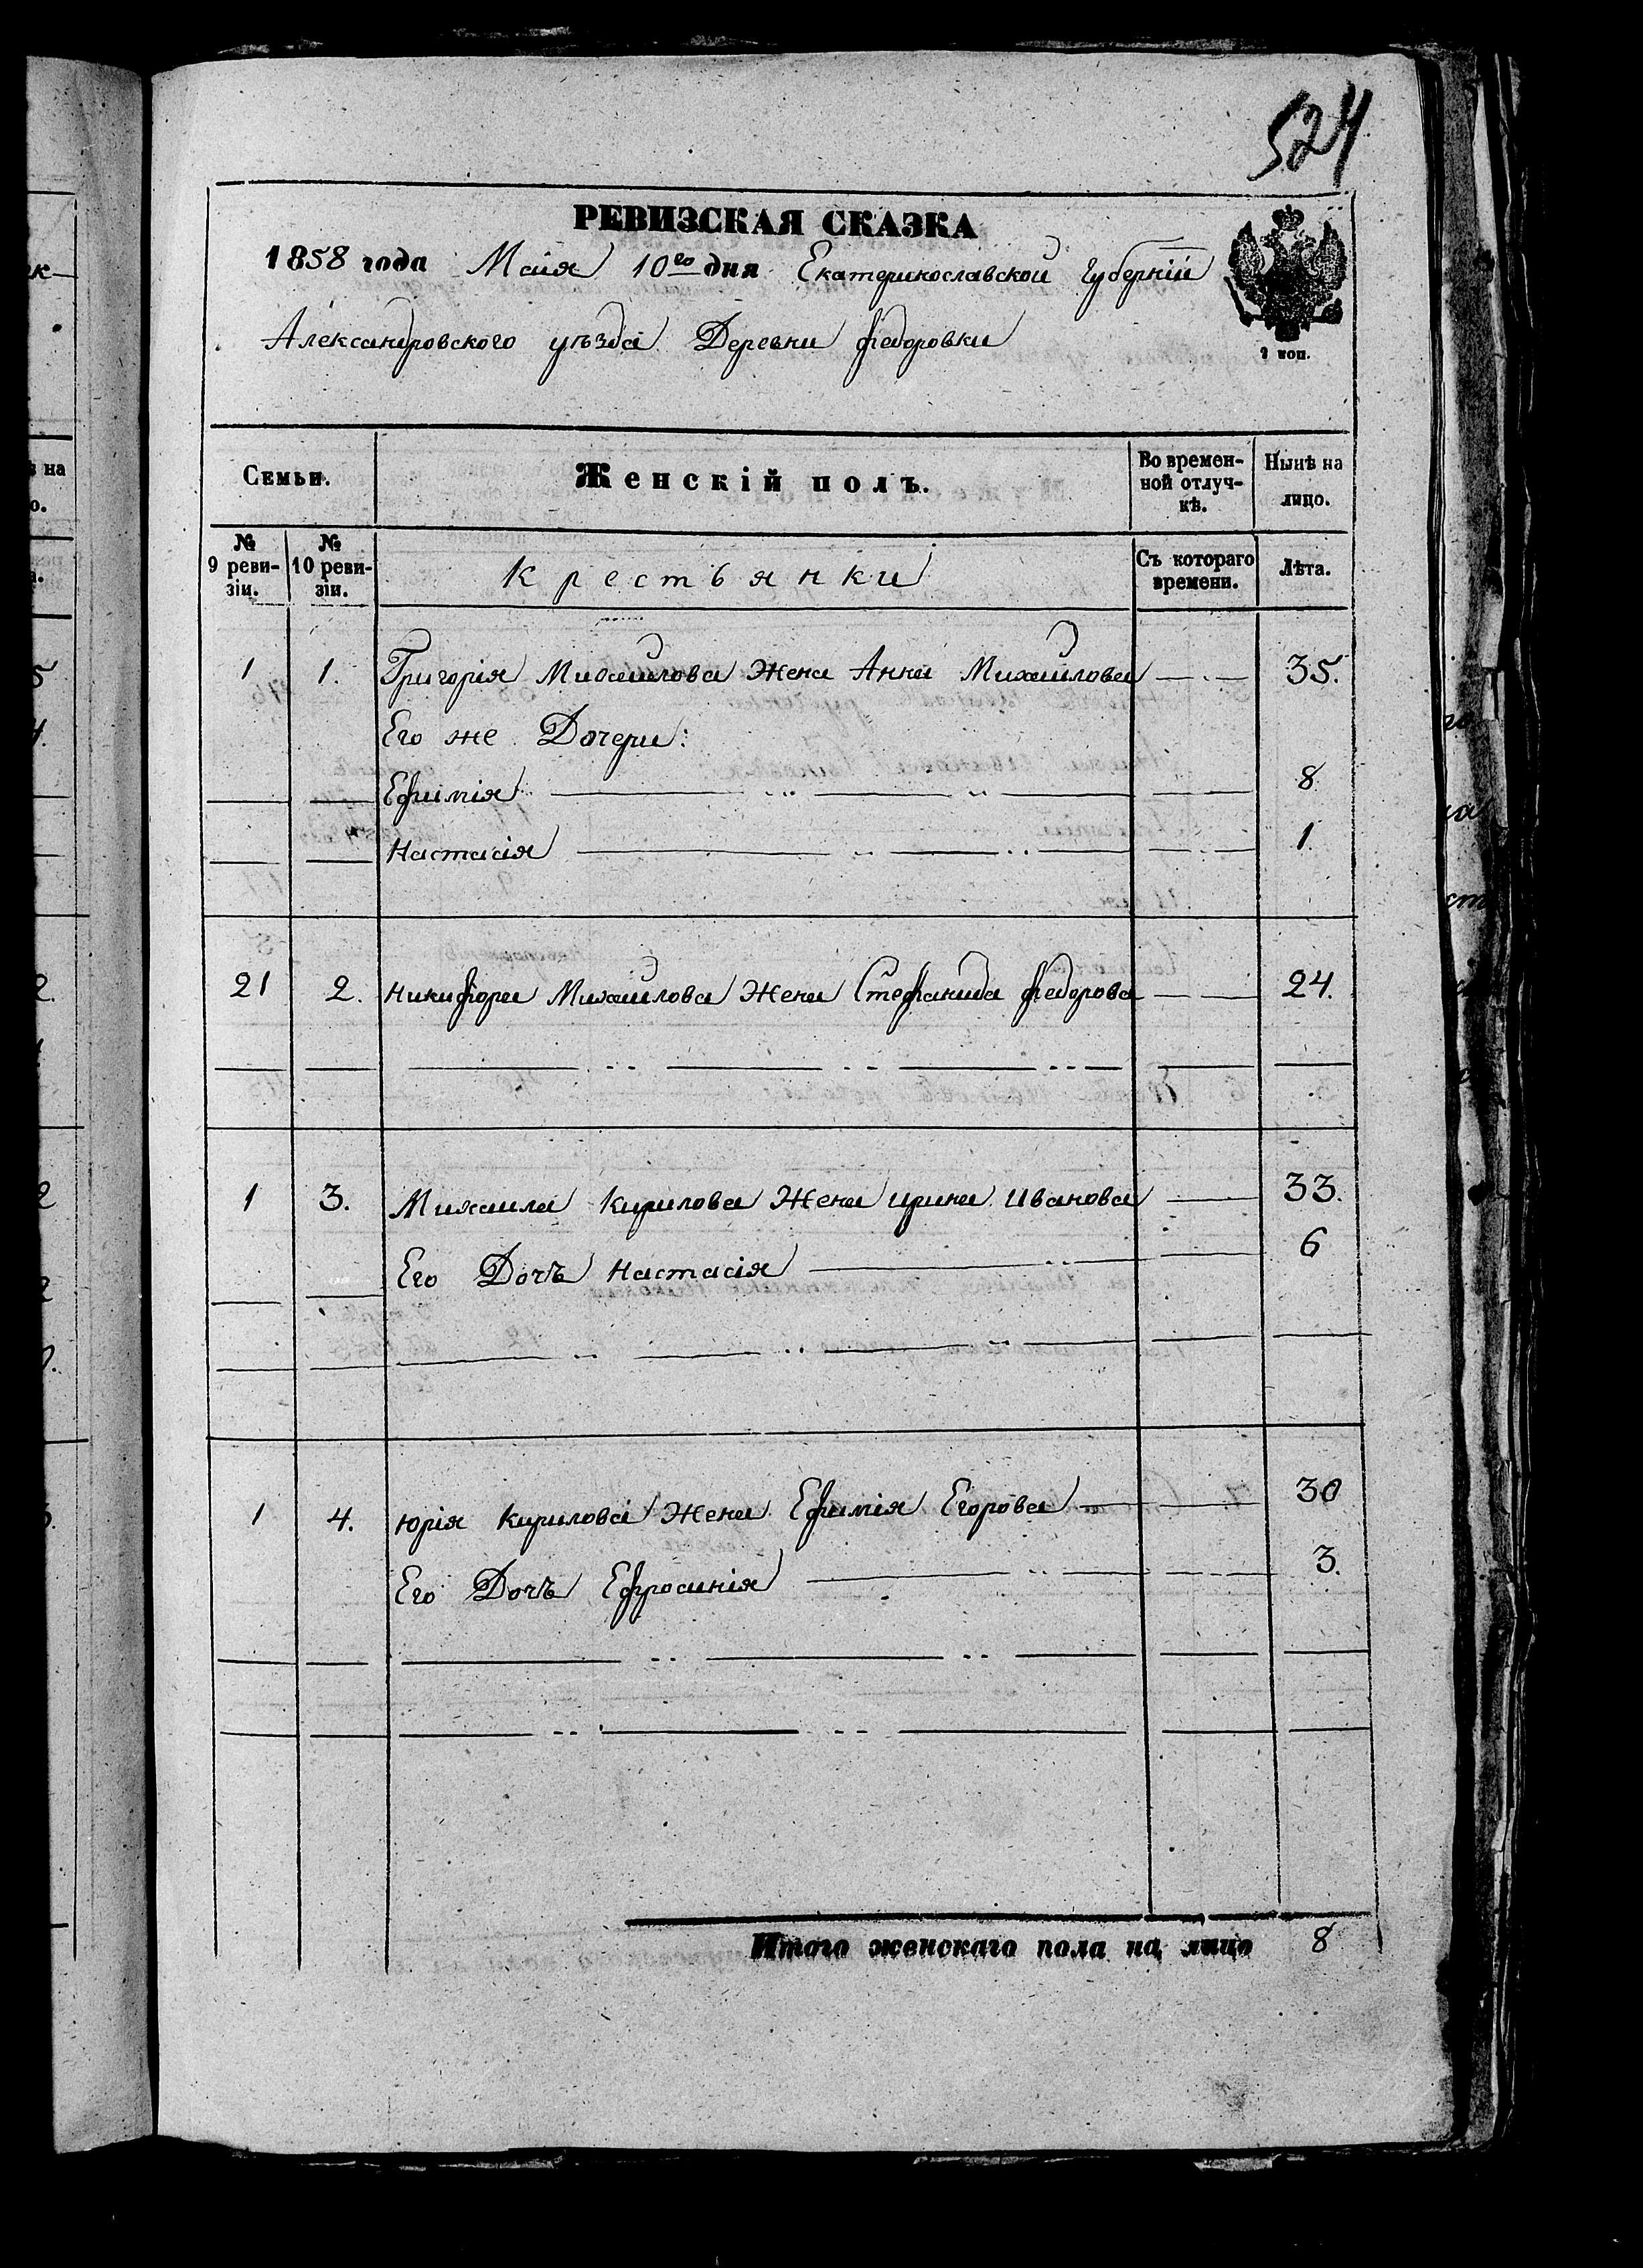 524
РЕВИЗСКАЯ СКАЗКА
1858 года Маія 10го дня Екатеринославской губерніи
Александровского уѣзда Деревни Федоровки
2 коп.
Семьи. Женскій полъ. Во времен- Нынѣ на
ной отлуч- лицо.
кѣ.
№ № Крестьянки Съ котораго Лѣта.
9 реви- 10 реви- времени.
зіи. зіи.
1 1. Григорія Михайлова Жена Анна Михайлова 35.
Его же Дочери:
Ефимія 8
Настасія 1
21 2. Никифора Михайлова Жена Стефанида Федорова 24.
1 3. Михаила Кирилова Жена Ирина Иванова 33.
Его Дочь Настасія 6
1 4. Юрія Кирилова Жена Ефимія Егорова 30
Его Дочь Ефросинія 3.
Итого женскаго пола на лицо 8